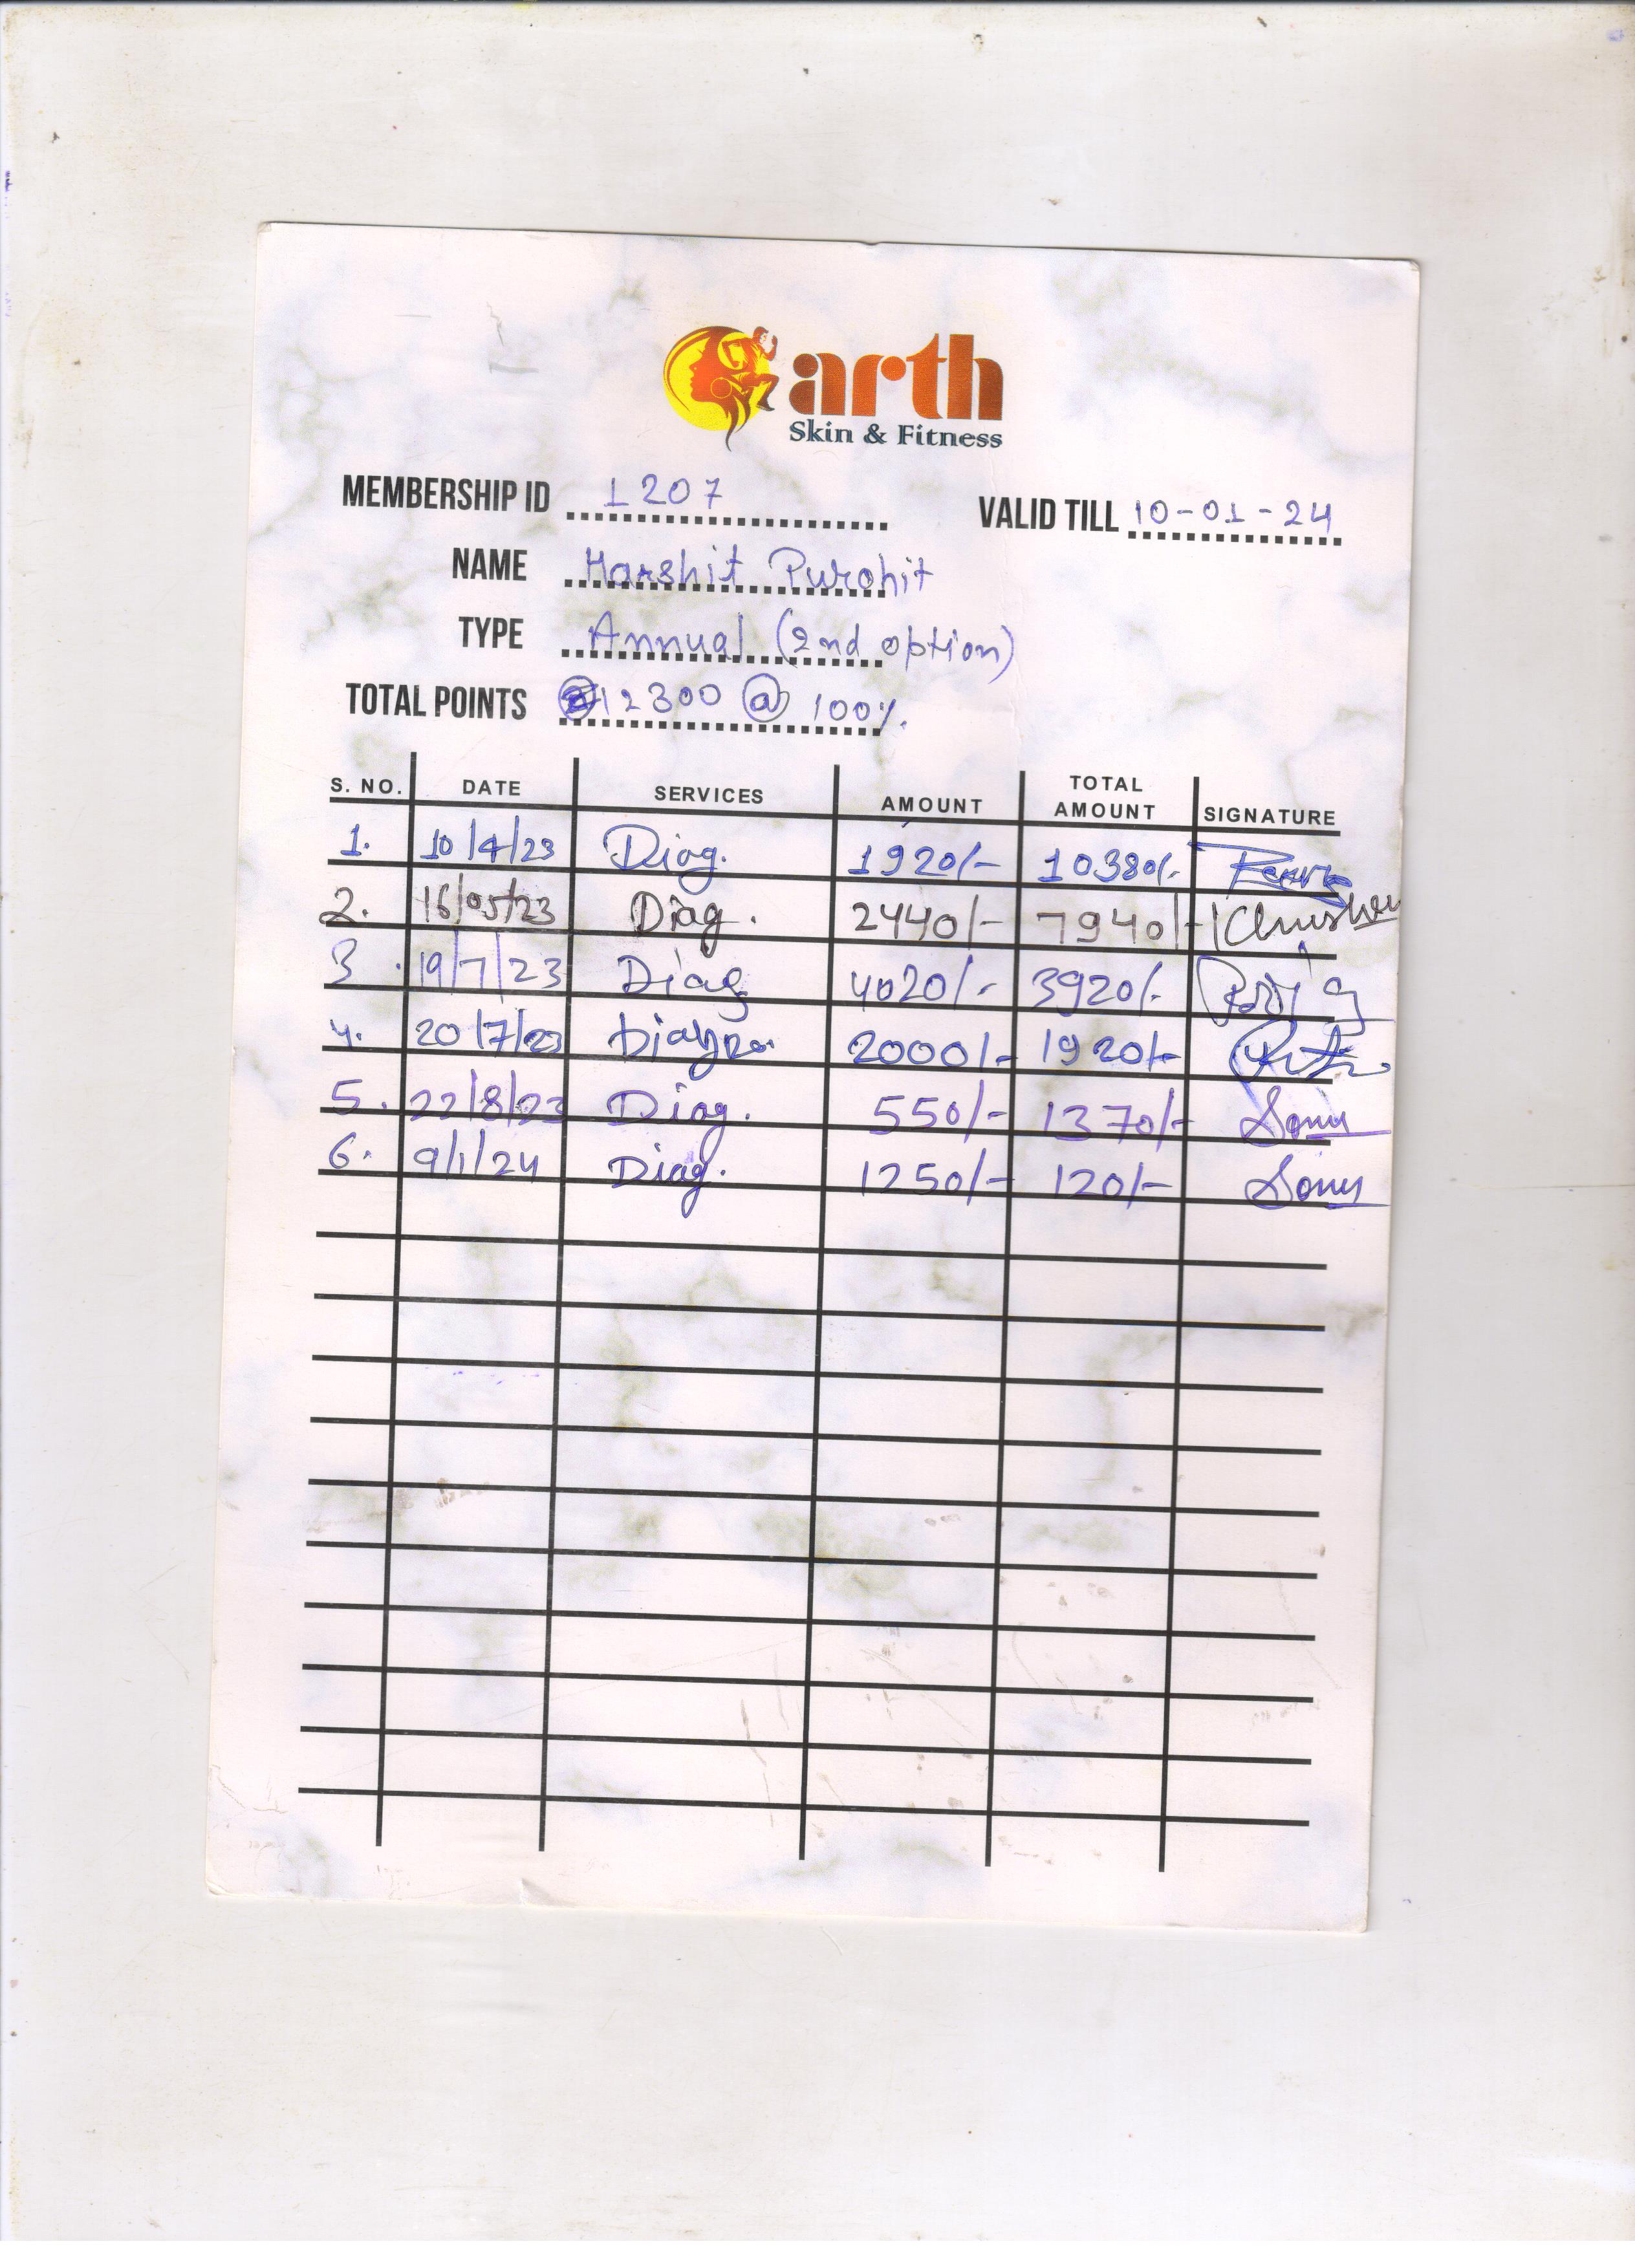 arth
Skin & Fitness
MEMBERSHIP ID 1207 VALID TILL 10-01-24
NAME Harshit Purohit
TYPE Annual (2nd option)
TOTAL POINTS 12300 @ 100%.
S. NO. DATE SERVICES AMOUNT TOTAL AMOUNT SIGNATURE
1. 10/4/23 Diag. 1920/- 10380/-
2. 16/05/23 Diag. 2440/- 7940/-
3. 19/7/23 Diag 4020/- 3920/-
4. 20/7/23 2000/- 1920/-
5. 22/8/23 Diag. 550/- 1370/- Sonu
6. 9/1/24 Diag. 1250/- 120/- Sonu